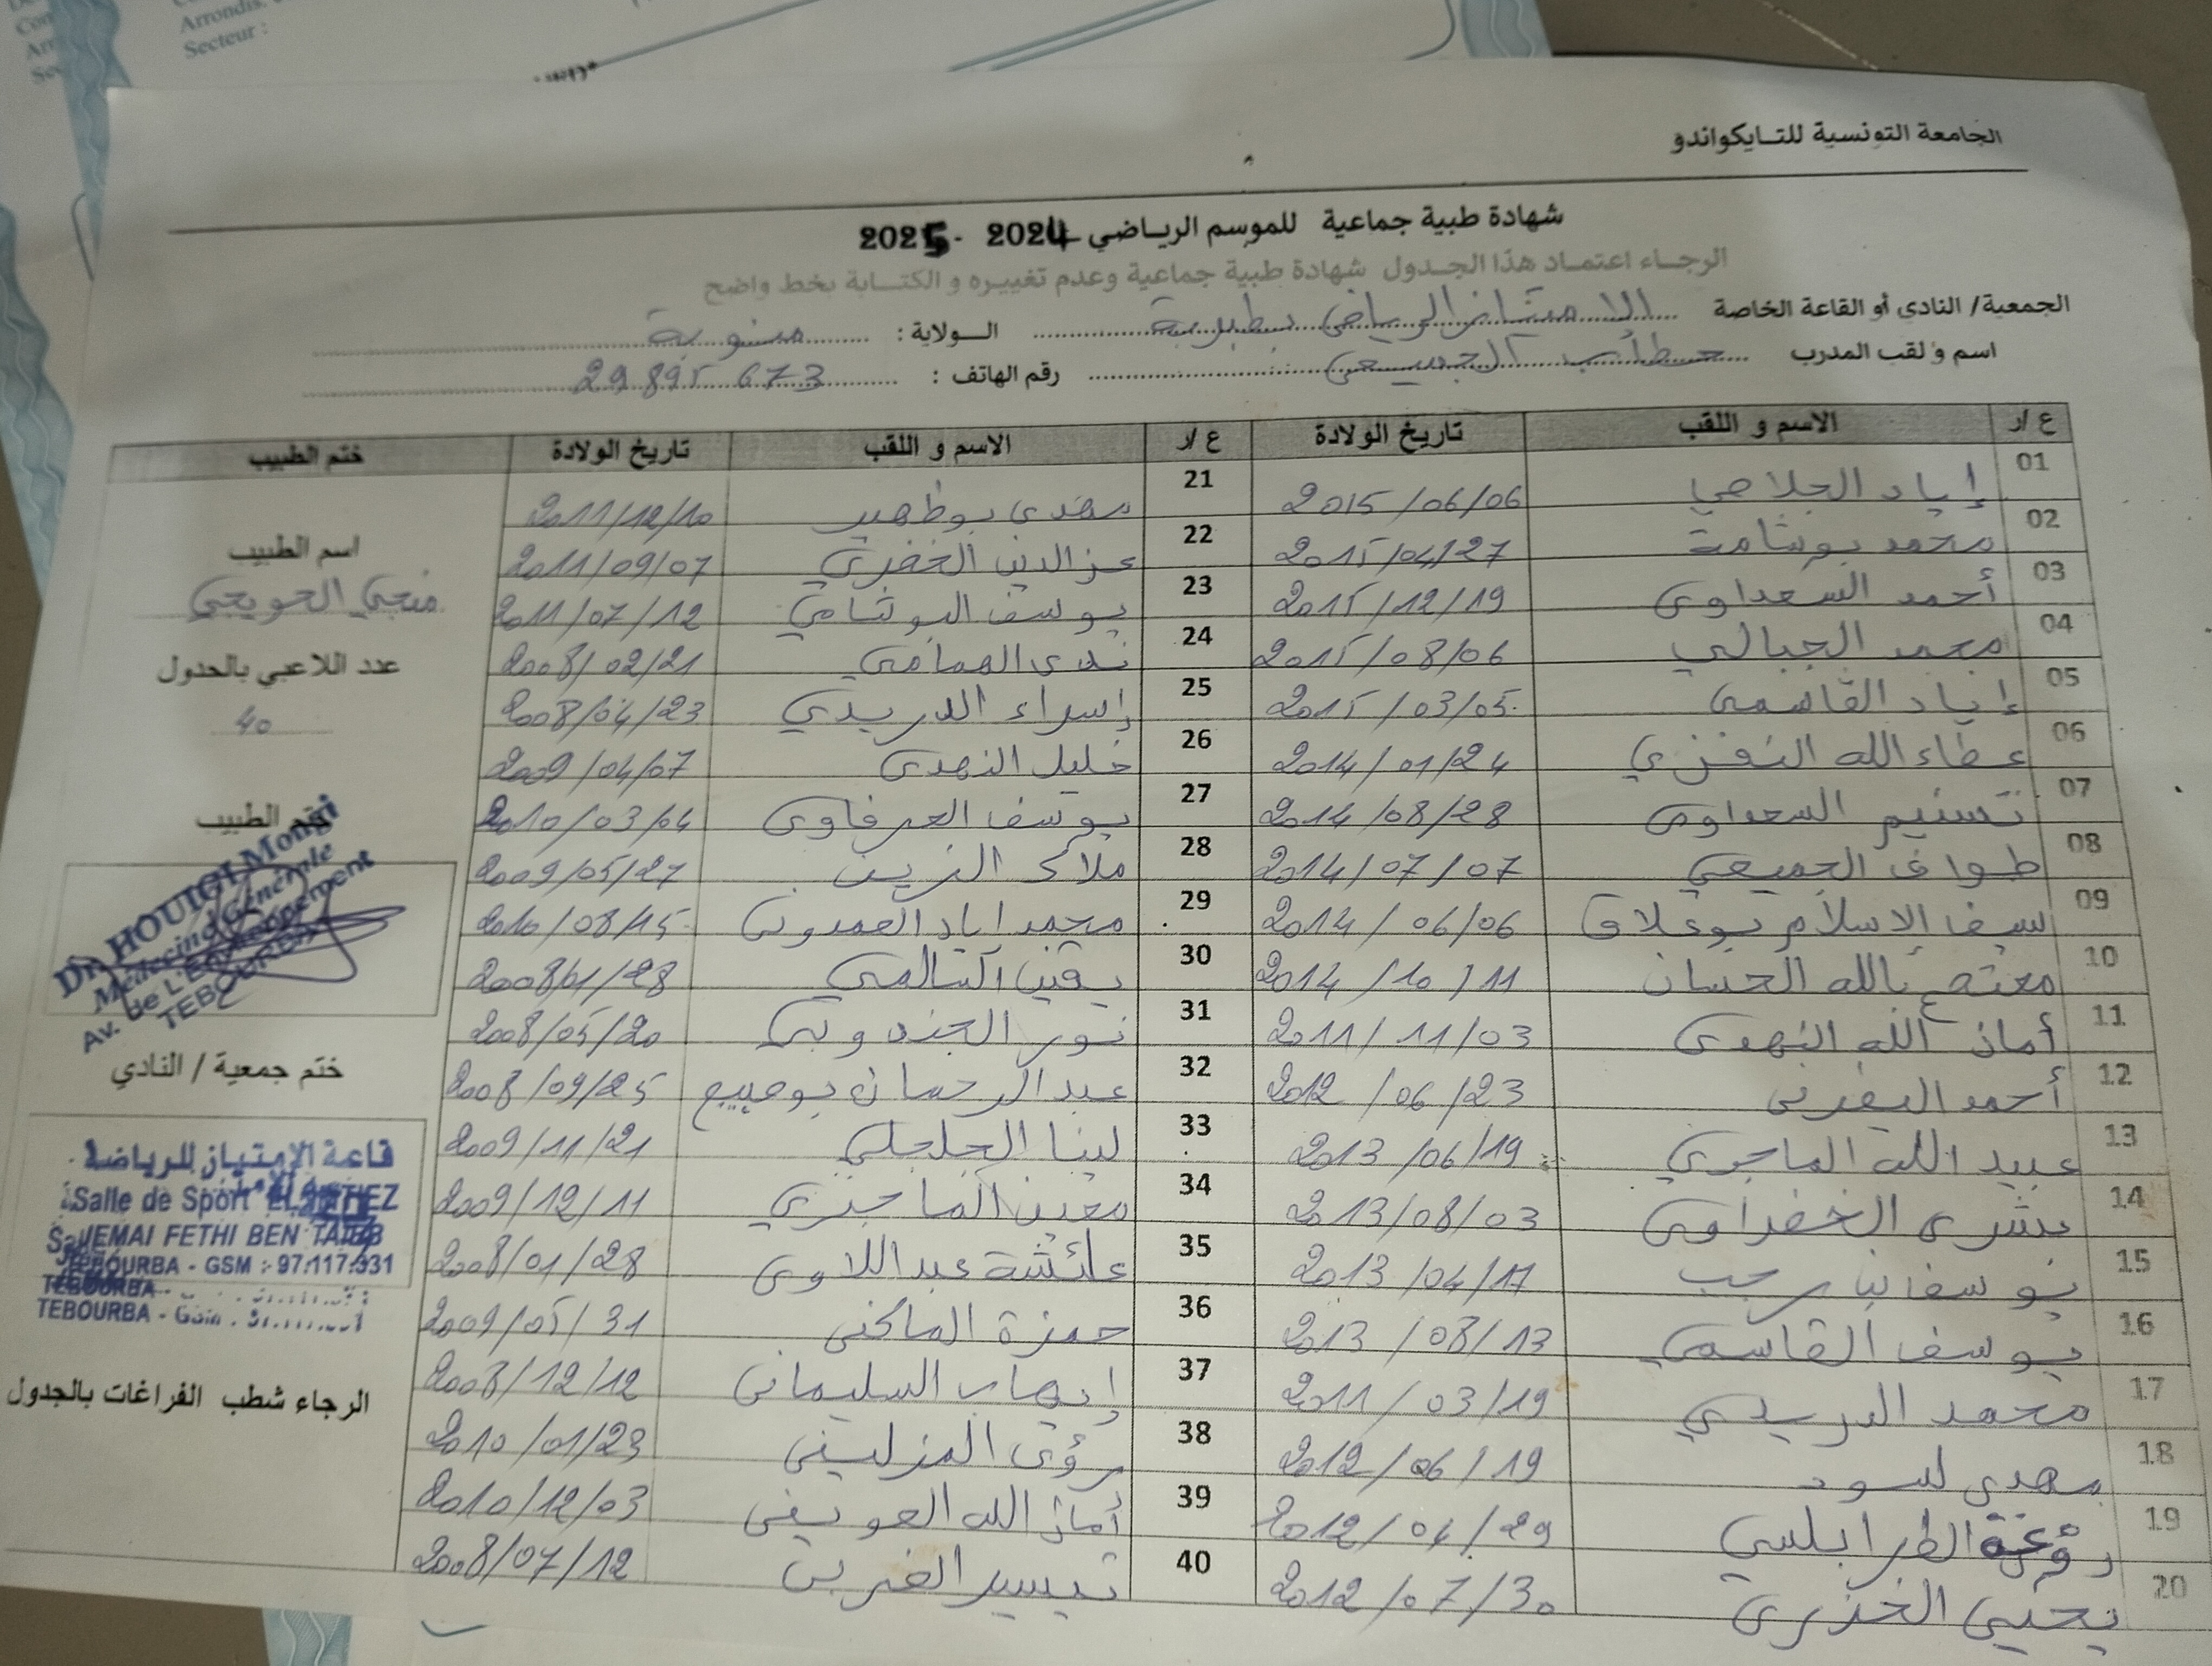 Arrondis.
Secteur :
الجامعة التونسية للتايكواندو
شهادة طبية جماعية للموسم الرياضي 2024 - 2025
الرجاء اعتماد هذا الجدول شهادة طبية جماعية وعدم تغييره و الكتابة بخط واضح
الجمعية/ النادي أو القاعة الخاصة الامتياز الرياضي بطبربة الولاية : منوبة
اسم و لقب المدرب رقم الهاتف : 29 895 673
ع /ر الاسم و اللقب تاريخ الولادة ع /ر الاسم و اللقب تاريخ الولادة ختم الطبيب
01 إياد الجلاصي 2015/06/06 21 مهدي بوظهير 2011/12/10
02 محمد بوشامة 2015/04/27 22 عز الدين 2011/09/07
03 أحمد السعداوي 2015/12/19 23 يوسف البوثامي 2011/07/12
04 محمد الجبالي 2015/08/06 24 ندى الهمامي 2008/02/21
05 إياد القاسمي 2015/03/05 25 إسراء الدريدي 2008/04/23
06 عطاء الله النفزي 2014/01/24 26 خليل النهدي 2009/04/07
07 تسنيم السعداوي 2014/08/28 27 يوسف العرفاوي 2010/03/04
08 طواف الجميعي 2014/07/07 28 ملاك الزين 2009/05/27
09 سيف الإسلام بوعلاق 2014/06/06 29 محمد اياد العمدوني 2010/08/15
10 بالله الحسان 2014/10/11 30 يقين السالمي 2008/01/28
11 أمان الله النهدي 2011/11/03 31 نور الجندوبي 2008/05/20
12 أحمد اليفرني 2012/06/23 32 عبد الرحمان 2008/09/25
13 عبيد الله الماجري 2013/06/19 33 لينا الجلجلي 2009/11/21
14 بشرى الخضراوي 2013/08/03 34 معين الماجري 2009/12/11
15 يوسف بن رجب 2013/04/17 35 عائشة عبداللاوي 2008/01/28
16 يوسف القاسمي 2013/08/13 36 حمزة الماكني 2009/05/31
17 محمد الدريدي 2011/03/19 37 إيهاب السليماني 2008/12/12
18 مهدي لسود 2012/06/19 38 رؤى المزليني 2010/01/23
19 الطرابلسي 2012/04/29 39 أمان الله العويني 2010/12/03
20 يحيى الخذري 2012/07/30 40 تيسير الغربي 2008/07/12
اسم الطبيب
منجي الحويجي
عدد اللاعبي بالجدول
40
ختم الطبيب
Dr. HOUIGI Mongi
Médecine Générale
Av. de L'Environnement
TEBOURBA
ختم جمعية / النادي
قاعة الإمتياز للرياضة
Salle de Sport EL IMTIEZ
JEMAI FETHI BEN TAIEB
TEBOURBA - GSM : 97.117.931
TEBOURBA -
TEBOURBA - Gsm :
الرجاء شطب الفراغات بالجدول